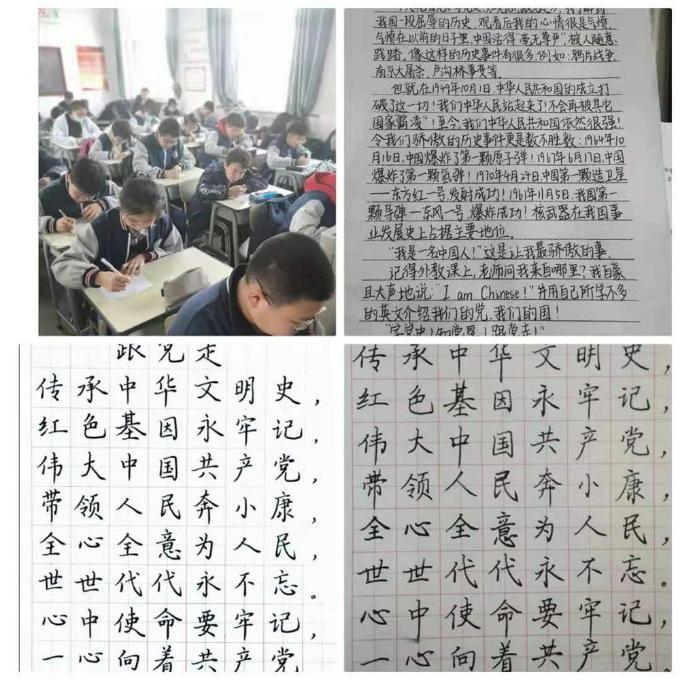 我国一段屈辱的历史,观看后我的心情很是气愤,
气愤在以前的日子里,中国活得“毫无尊严”被人随意
践踏。像这样的历史事件有很多,例如:鸦片战争、
南京大屠杀、卢沟桥事变等。
但就在1949年10月1日,中华人民共和国的成立打
破了这一切!我们中华人民站起来了!不会再被其它
国家霸凌”!至今,我们中华人民共和国依然很强!
令我们骄傲的历史事件更是数不胜数:1964年10
月16日,中国爆炸了第一颗原子弹!1967年6月17日,中国
爆炸了第一氢弹!1970年4月24日,中国第一颗造卫星
——东方红一号,发射成功!1961年11月5日,我国第一
颗导弹—东风一号,爆炸成功!核武器在我国事
业发展史上占据主要地位。
“我是一名中国人!”这是让我最骄傲的事,
记得外教课上,老师问我来自哪里?我自豪
且大声地说:“I am Chinese!”并用自己所学不多
的英文介绍我们的党、我们的国!
“学党史!知党恩!跟党走!”
跟党走
传承中华文明史,
红色基因永牢记,
伟大中国共产党,
带领人民奔小康,
全心全意为人民,
世世代代永不忘。
心中使命要牢记,
一心向着共产党
传承中华文明史,
红色基因永牢记,
伟大中国共产党,
带领人民奔小康,
全心全意为人民,
世世代代永不忘。
心中使命要牢记,
一心向着共产党